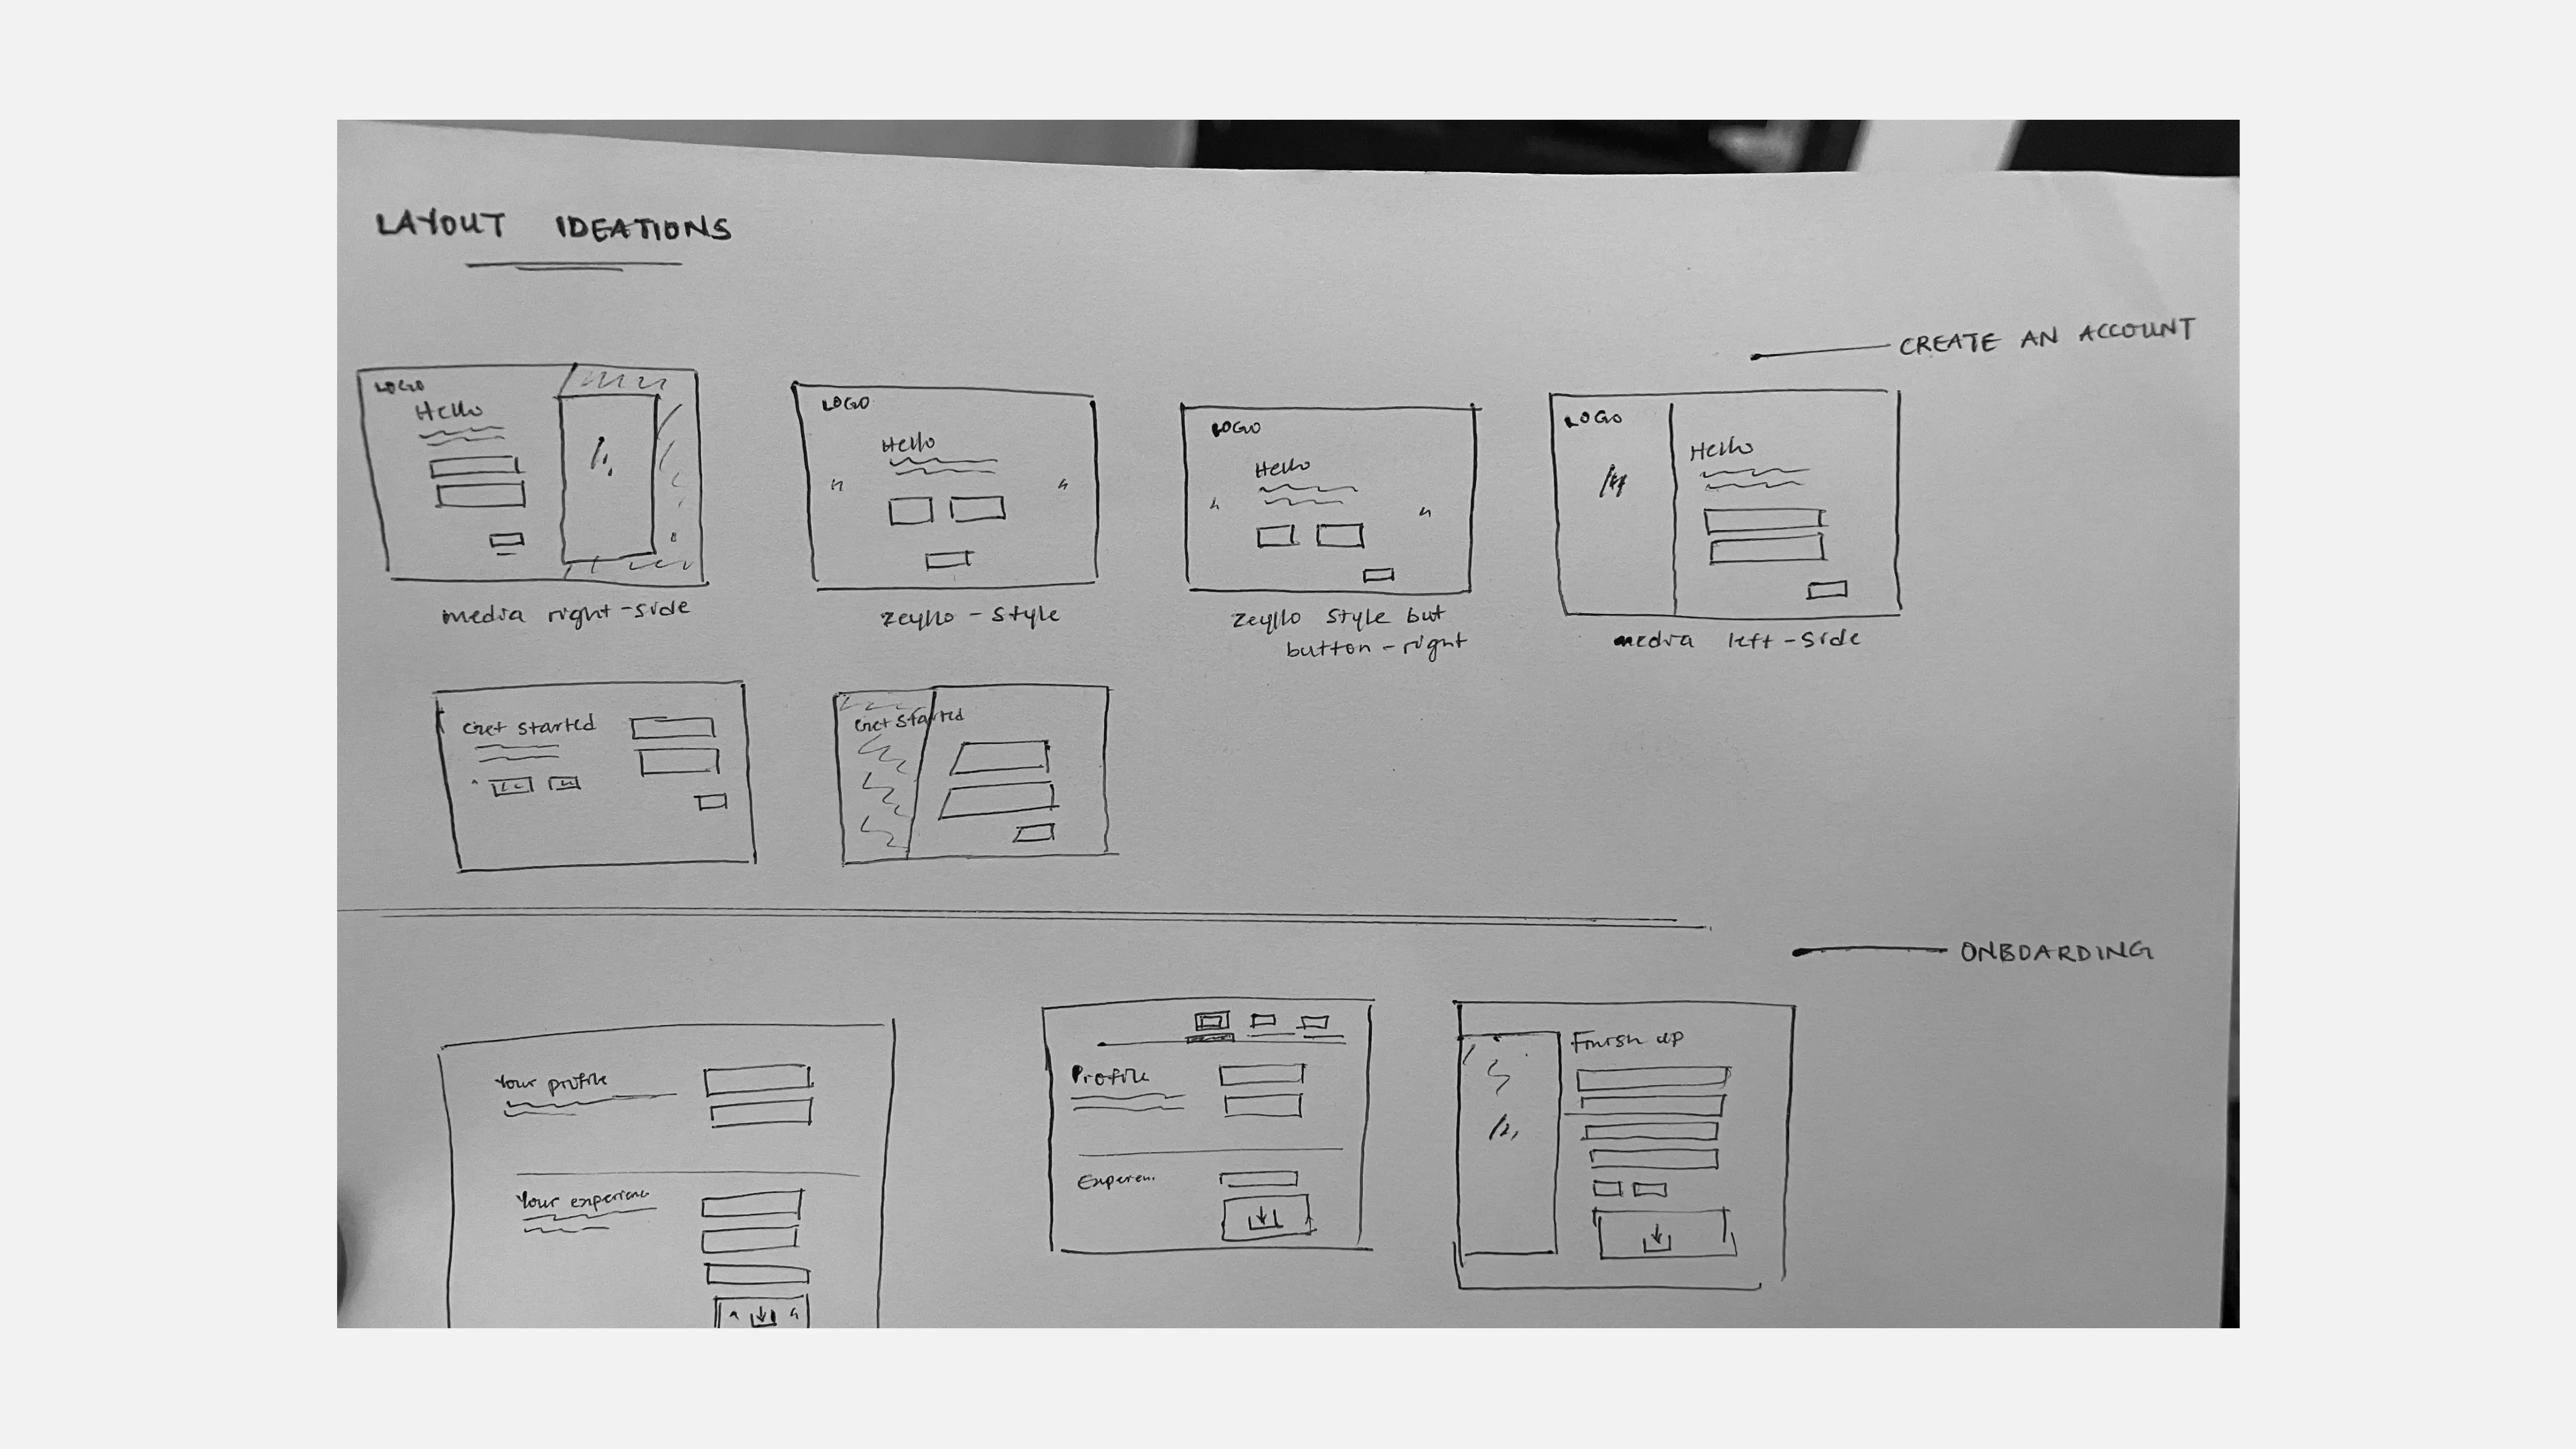 LAYOUT IDEATIONS
CREATE AN ACCOUNT
LOGO
Hello
media right-side
LOGO
Hello
zeyllo-style
LOGO
Hello
zeyllo style but
button-right
LOGO
Hello
media left-side
Get started
Get started
ONBOARDING
Your profile
Your experienc
Profile
Experien..
Finish up